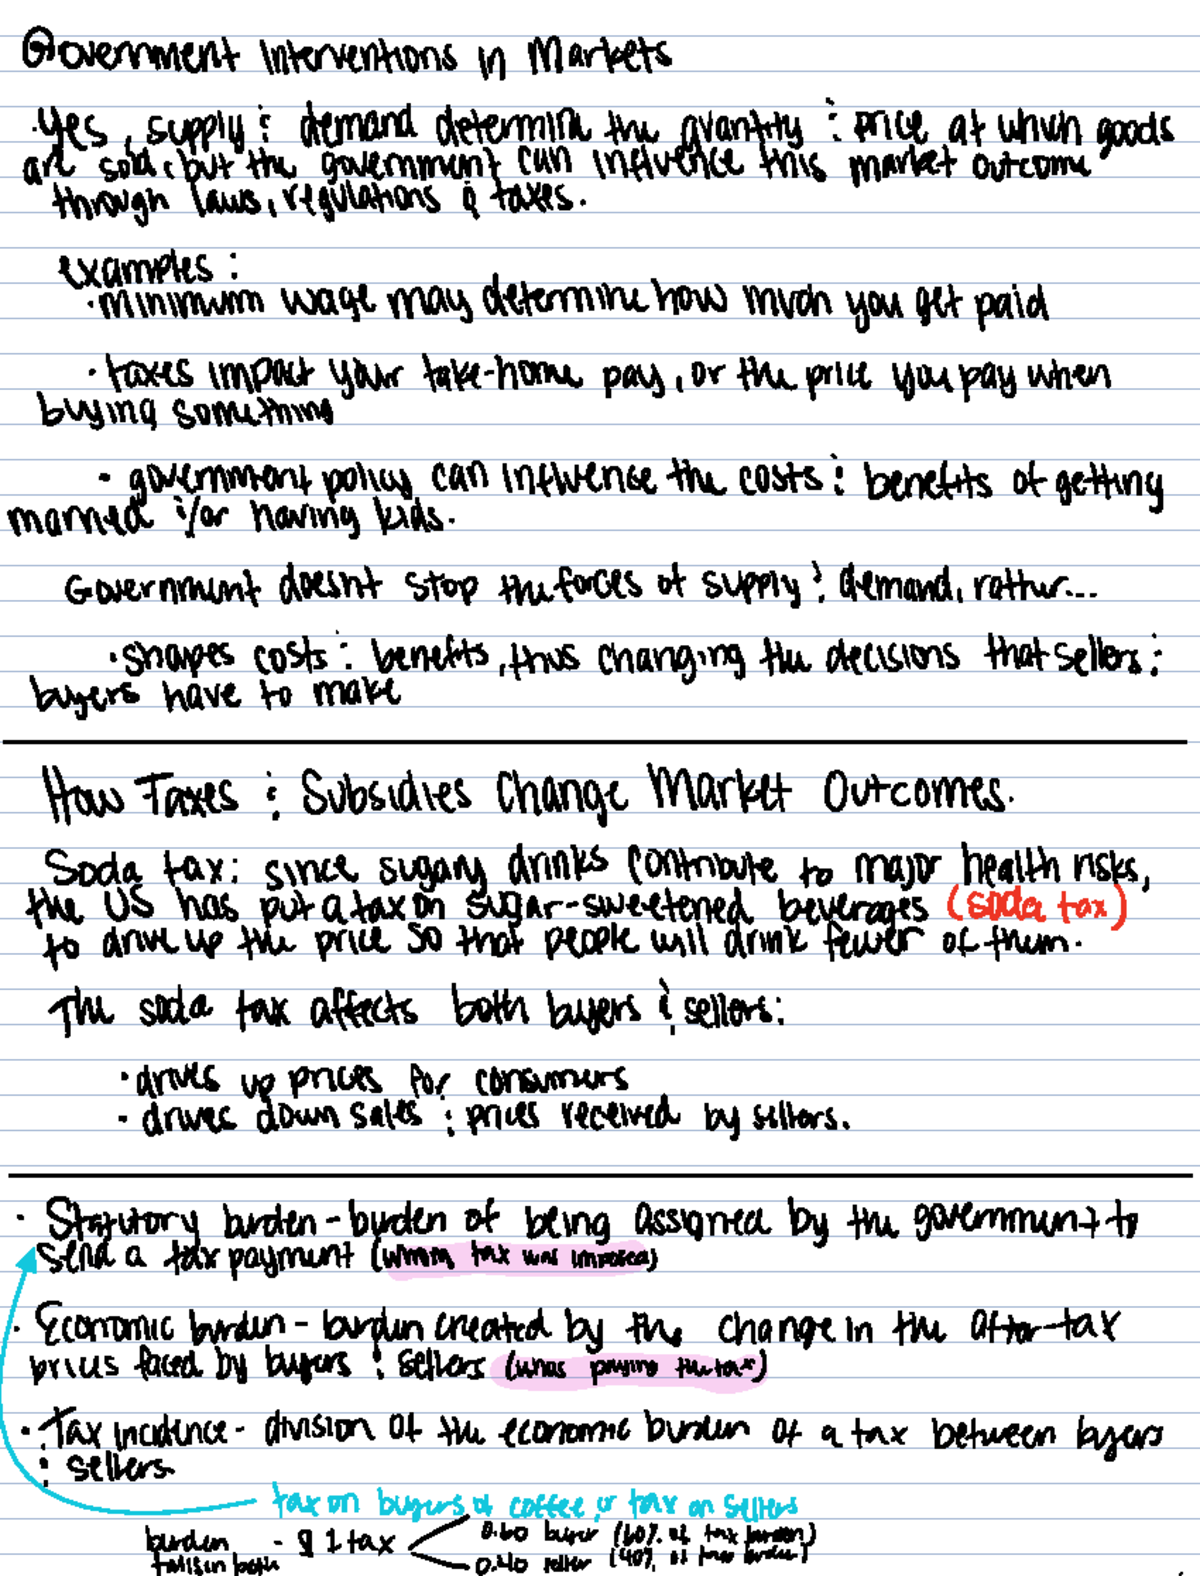 Government Interventions in Markets
·Yes, supply & demand determine the quantity & price at which goods
are sold, but the government can influence this market outcome
through laws, regulations & taxes.
examples:
·minimum wage may determine how much you get paid
·taxes impact your take-home pay, or the price you pay when
buying something
· government policy can influence the costs & benefits of getting
married &/or having kids.
Government doesnt stop the forces of supply & demand, rather...
·shapes costs & benefits, thus changing the decisions that sellers &
buyers have to make
How Taxes & Subsidies Change Market Outcomes.
Soda tax: since sugary drinks contribute to major health risks,
the US has put a tax on sugar-sweetened beverages (soda tax)
to drive up the price so that people will drink fewer of them.
The soda tax affects both buyers & sellers:
·drives up prices for consumers
· drives down sales & prices received by sellers.
· Statutory burden - burden of being assigned by the government to
send a tax payment (whom tax was imposed)
· Economic burden - burden created by the change in the after-tax
prices faced by buyers & sellers (whos paying the tax)
· Tax incidence - division of the economic burden of a tax between buyers
& sellers
tax on buyers of coffee, or tax on sellers
burden - $1 tax 0.60 buyer (60% of tax burden)
falls on both 0.40 seller (40% of tax burden)